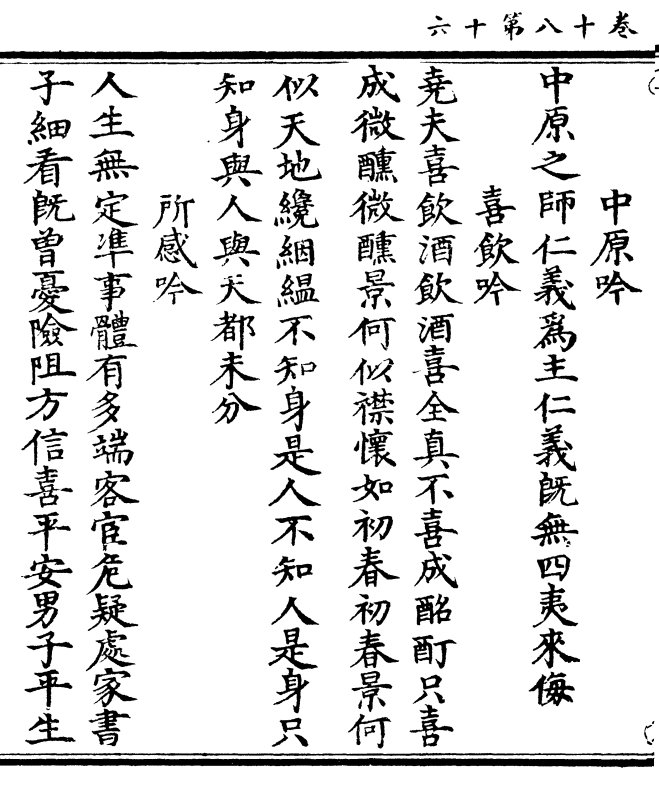 卷十八第十六
中原吟
中原之師仁義爲主仁義旣無四夷來侮
喜飲吟
堯夫喜飲酒飲酒喜全真不喜成酩酊只喜
成微醺微醺景何似襟懷如初春初春景何
似天地纔絪縕不知身是人不知人是身只
知身與人與天都未分
所感吟
人生無定準事體有多端客宦危疑處家書
子細看旣曾憂險阻方信喜平安男子平生